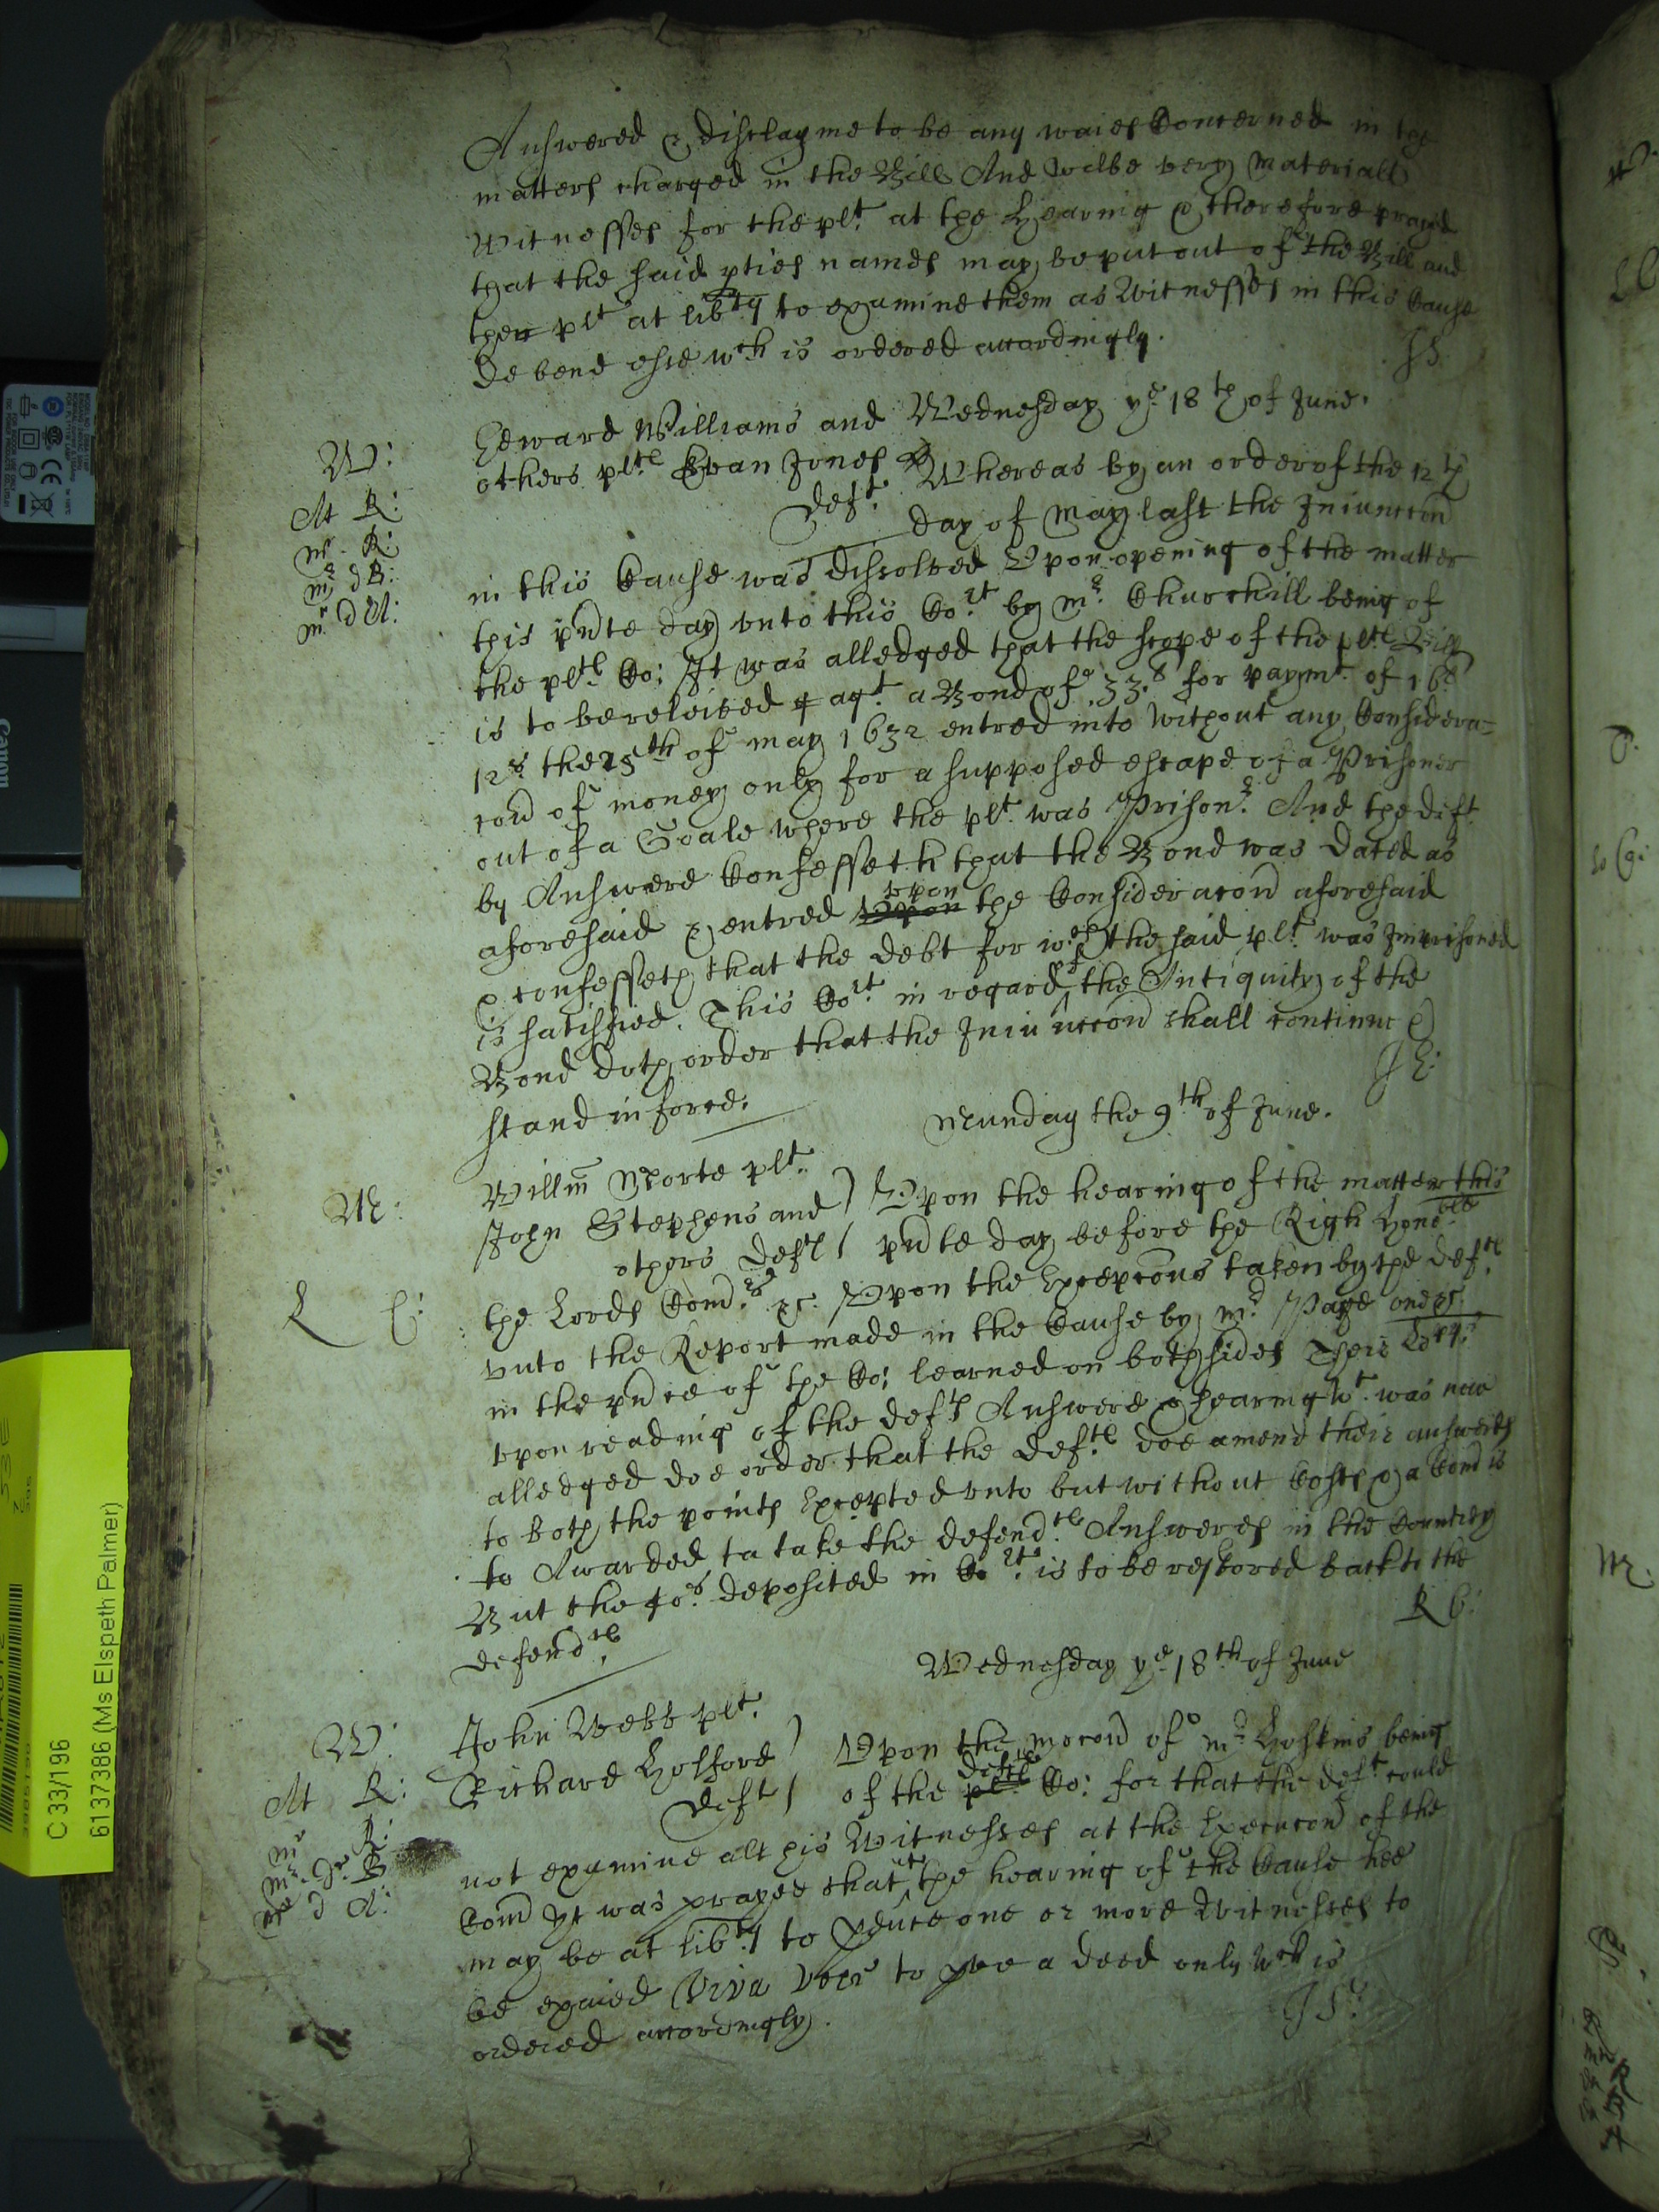 Answered & disclayme to be any waies Concerned in the
matters charged in the Bill And wilbe very materiall
Witnesses for the plt. at the Hearing & therefore prayed
that the said pties names may be put out of the Bill and
the plt at libty to examine them as Witnesses in this Cause
De bene esse wch is ordered accordingly.
JS.
W:
Edward Williams and Wednesday ye 18th of June.
others plts. Evan Jones Whereas by an order of the 12th
Deft. day of May last the Iniunccon
At R:
mr. R:
mr d B:
mr d A:
in this Cause was dissolved Upon opening of the matter
this pnte day vnto this Cort. by mr. Churchill being of
the plts. Co: It was alledged that the scope of the plts. Bill
is to be releived agt. a Bond of 33.l for paymt. of 16.l
12s the 25th of May 1632 entred into without any Considera=
con of money only for a supposed escape of a Prisoner
out of a Goale where the plt. was Prisonr. And the deft
by Answere Confesseth that the Bond was Dated as
aforesaid & entred upon the Consideracon aforesaid
& confesseth that the debt for wch the said plt. was Imprisoned
is satisfied. This Cort. in regard of the Antiquity of the
Bond doth order that the Iniunccon shall continue &
stand in force.
JE:
Munday the 9th of June.
M:
Willm Morte plt.
John Stephens and ) Upon the hearing of the matter this
others Defts ( pnte day before the Right Honoble
L C:
the Lords Comrs. &c. Upon the Excepcons taken by the defts.
vnto the Report made in the Cause by mr. Page one &c.
in the pnce of the Co: learned on both sides Their Lorps.
upon reading of the defts Answere & hearing wt. was now
alledged doe order that the Defts. doe amend their answeres
to both the points Excepted vnto but without Costs & a Comd is
to Awarded ta take the defendts. Answeres in the Country
But the 40s. deposited in Cort. is to be restored back to the
defendts.
R C:
Wednesday ye 18th of June
W:
John Webb plt.
Richard Holford ) Upon the mocon of mr Hoskins being
Deft ( of the defts plts. Co: for that the deft could
At R:
mr R:
mr. d. B
mr d A:
not examine all his Witnesses at the Execucon of the
Comd Yt was prayed that at the hearing of the Cause hee
may be at libty to pduce one or more Witnesses to
be exaied Viva voce to pve a deed only wch is
ordered accordingly.
JS:
C 33/196
6137386 (Ms Elspeth Palmer)
Canon